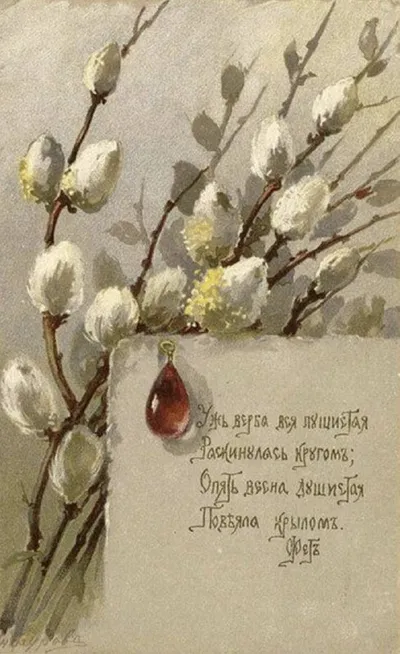 Ужъ верба вся пушистая
Раскинулась кругомъ;
Опять весна душистая
Повѣяла крыломъ.
Фетъ